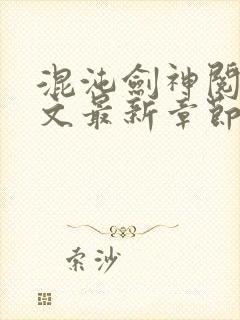 混沌劍神閱
文最新章節
索沙